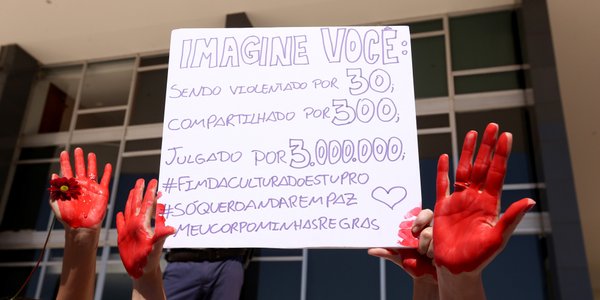 IMAGINE VOCÊ:
SENDO VIOLENTADO POR 30,
COMPARTILHADO POR 300,
JULGADO POR 3.000.000,
#FIMDACULTURADOESTUPRO
#SÓQUEROANDAREMPAZ
#MEUCORPOMINHASREGRAS